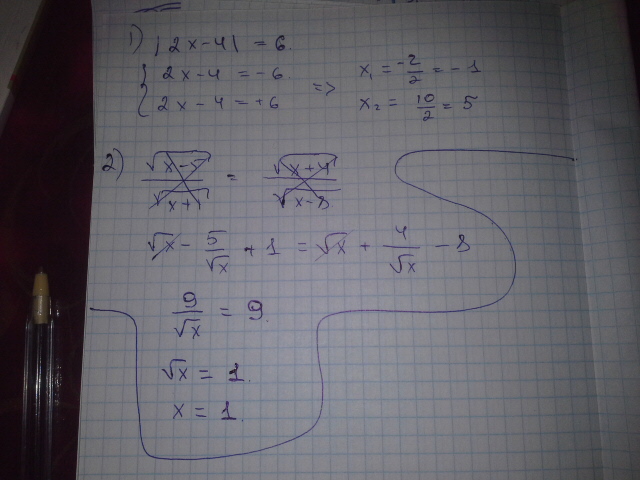 1) |2x-4| = 6.
{ 2x-4 = -6
2x-4 = +6
=> x₁ = -2/2 = -1
x₂ = 10/2 = 5
2) √x-5 / √x+1 = √x+4 / √x-8
√x - 5/√x + 1 = √x + 4/√x - 8
9/√x = 9.
√x = 1.
x = 1.